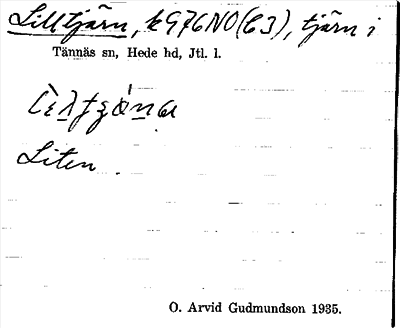 Lilltjärn, k 976NO(C3), tjärn i
Tännäs sn, Hede hd, Jtl. l.
Liten.
O. Arvid Gudmundson 1935.